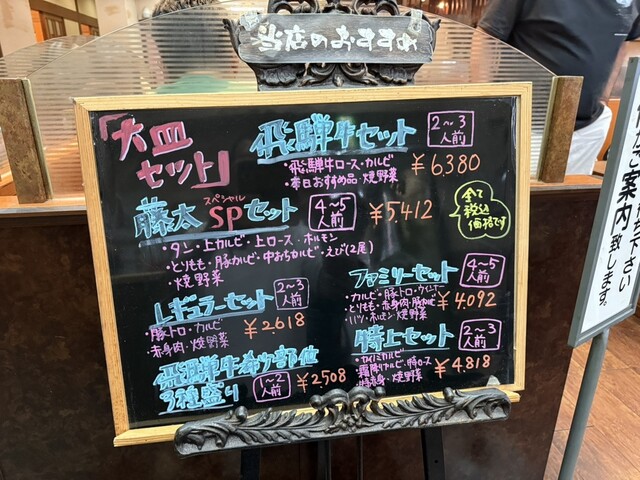 当店のおすすめ
「大皿
セット」
飛騨牛セット
2~3
人前
・飛騨牛ロース・カルビ
・本日おすすめ品・焼野菜
¥6380
藤太SPセット
スペシャル
4~5
人前
¥5412
全て
税込
価格です
・タン・上カルビ・上ロース・ホルモン
・とりもも・豚カルビ・中おちカルビ・えび(2尾)
・焼野菜
レギュラーセット
2~3
人前
・豚トロ・カルビ
・赤身肉・焼野菜
¥2618
ファミリーセット
4~5
人前
・カルビ・豚トロ・ウインナー
・とりもも・赤身肉・豚カルビ
・ハツ・ホルモン・焼野菜
¥4092
飛騨牛希少部位
3種盛り
1~2
人前
¥2508
特上セット
2~3
人前
・カイノミカルビ
・霜降りカルビ・特ロース
・特赤身・焼野菜
¥4.818
ご案内致します。
ださい